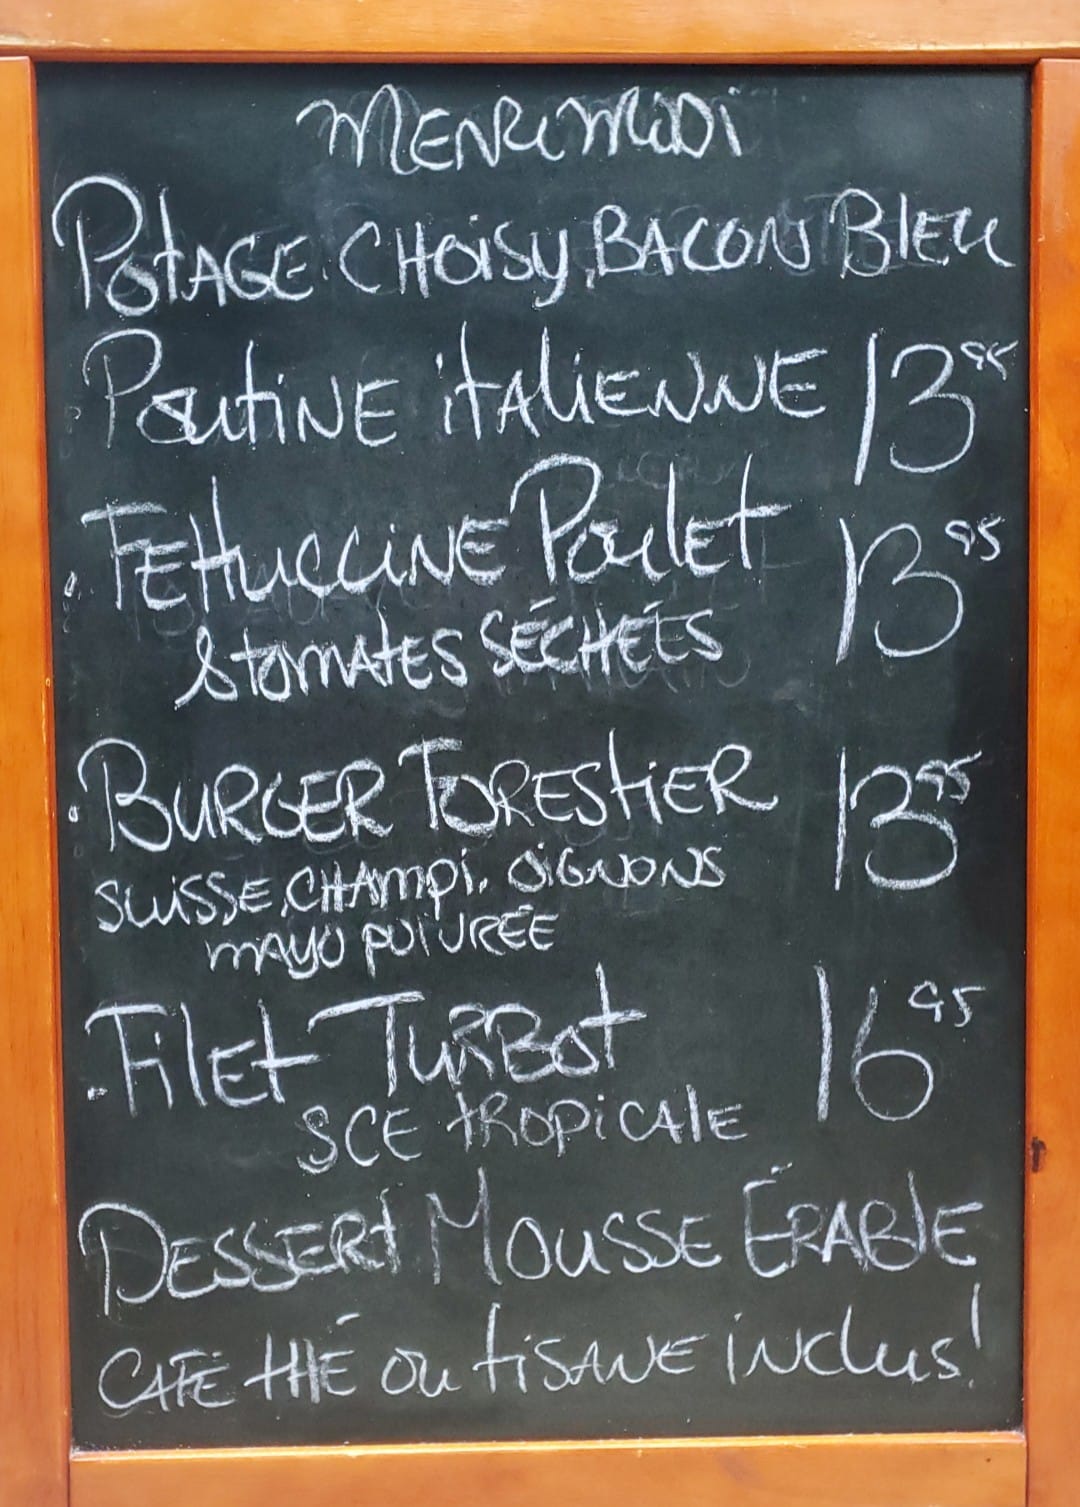 MENU MIDI
POTAGE CHOISY, BACON BLEU
POUTINE iTALIENNE 13 95
. FETTUCCINE POULET 13 95
& TOMATES SÉCHÉES
. BURGER FORESTIER 13 95
SUISSE, CHAMPI. OIGNONS
MAYO POIVRÉE
. FILET TURBOT 16 95
SCE TROPICALE
DESSERT MOUSSE ÉRABLE
CAFÉ THÉ OU TISANE INCLUS!